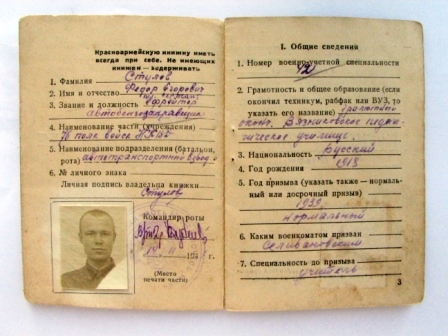 Красноармейскую книжку иметь
всегда при себе. Не имеющих
книжек — задерживать
1. Фамилия Стулов
2. Имя и отчество Федор Егорович
3. Звание и должность ефрейтор
автобензозаправщик
4. Наименование части (учреждения)
70 полк войск НКВД
5. Наименование подразделения (батальон,
рота) автотранспортный взвод
6. № личного знака
Личная подпись владельца книжки
Стулов
Командир роты
(Место
печати части)
I. Общие сведения
1. Номер военно-учетной специальности
2. Грамотность и общее образование (если
окончил техникум, рабфак или ВУЗ, то
указать его название) грамотный
оконч. Рязанское педаго-
гическое училище.
3. Национальность русский
4. Год рождения 1918
5. Год призыва (указать также — нормаль-
ный или досрочный призыв)
1939
нормальный
6. Каким военкоматом призван
Селивановским
7. Специальность до призыва
учитель
3